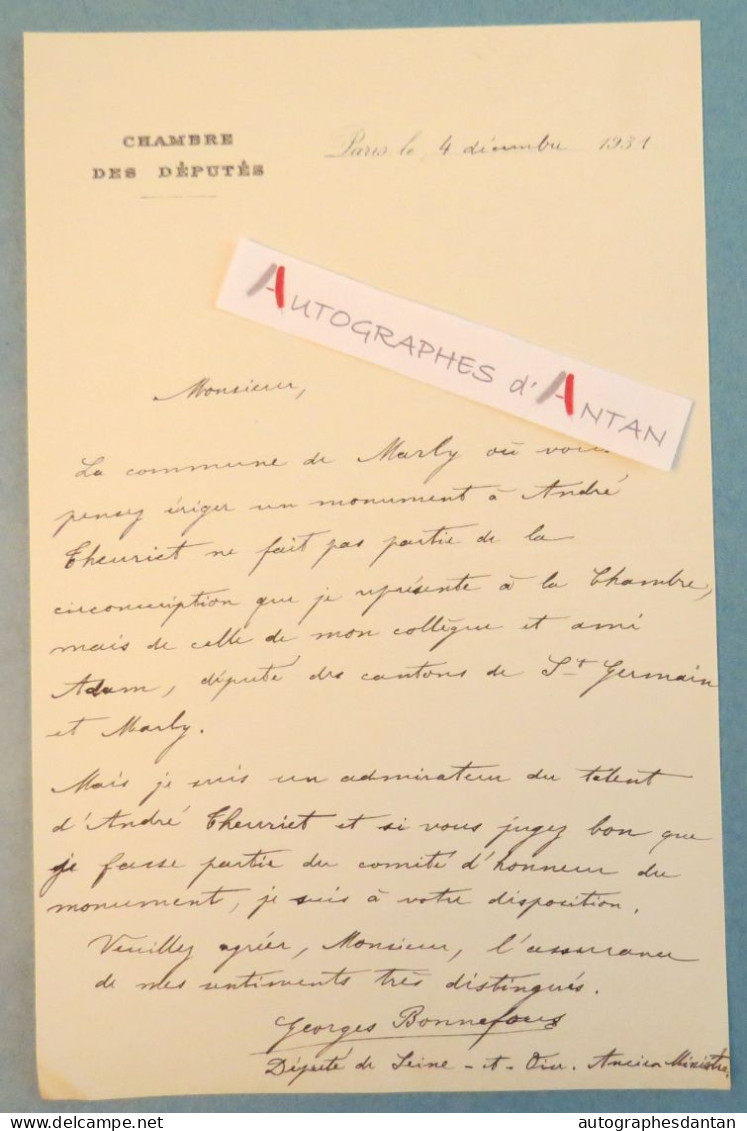 CHAMBRE
DES DÉPUTÉS
Paris, le 4 décembre 1931
AUTOGRAPHES d'ANTAN
Monsieur,
La commune de Marly où vous
pensez ériger un monument à André
Theuriet ne fait pas partie de la
circonscription que je représente à la Chambre,
mais de celle de mon collègue et ami
Adam, député des cantons de St Germain
et Marly.
Mais je suis un admirateur du talent
d'André Theuriet et si vous jugez bon que
je fasse partie du comité d'honneur du
monument, je suis à votre disposition.
Veuillez agréer, Monsieur, l'assurance
de mes sentiments très distingués.
Georges Bonnefous
Député de Seine-et-Oise. Ancien Ministre.
delcampe.net
autographesdantan